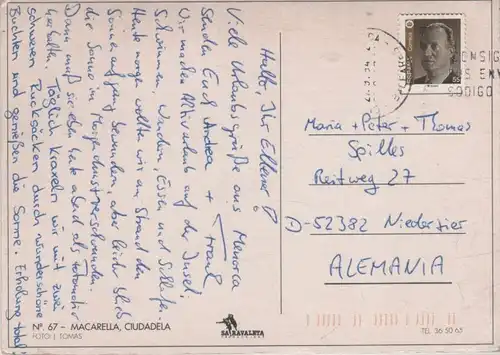 Hallo, Ihr Ellener!
Viele Urlaubsgrüße aus Menorca
senden Euch Andrea + Frank
Wir machen Aktivurlaub auf der Insel:
Schwimmen, Wandern, Essen und Schlafen.
Heute morgen wollten wir am Strand den
Sonnenaufgang bewundern, aber leider blieb
die Sonne im Morgendunst verschwunden.
Dann muß sie eben heute abend als Fotomotiv
herhalten. Täglich kraxeln wir mit zwei
schweren Rucksäcken durch wunderschöne
Buchten und genießen die Sonne. Erholung total!
Maria + Peter + Thomas
Spilles
Reitweg 27
D-52382 Niederzier
ALEMANIA
CODIGO
Nº 67 - MACARELLA, CIUDADELA
FOTO: J. TOMAS
SA RAVALETA
TEL. 36 50 65